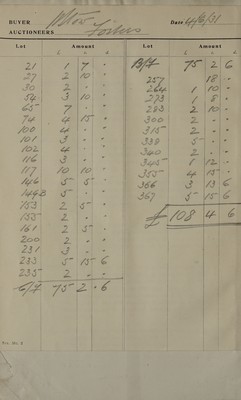 BUYER Wtoo
AUCTIONEERS Fosters Date 4/6/31
Lot Amount
£ s d
21 1 7 "
27 2 10 "
30 2 " "
54 3 10 "
65 7 " "
74 4 15 "
100 4 " "
101 3 " "
102 4 " "
116 3 " "
117 10 10 "
146 5 5 "
149B 5 " "
153 2 5 "
155 2 " "
161 2 5 "
200 2 " "
231 3 " "
233 5 15 6
235 2 " "
C/F 75 2 6
Lot Amount
£ s d
B/F 75 2 6
257 18 "
264 1 10 "
273 1 8 "
283 2 10 "
300 2 " "
315 2 " "
338 5 " "
340 2 " "
345 1 12 "
355 4 15 "
366 3 13 6
367 5 15 6
£ 108 4 6